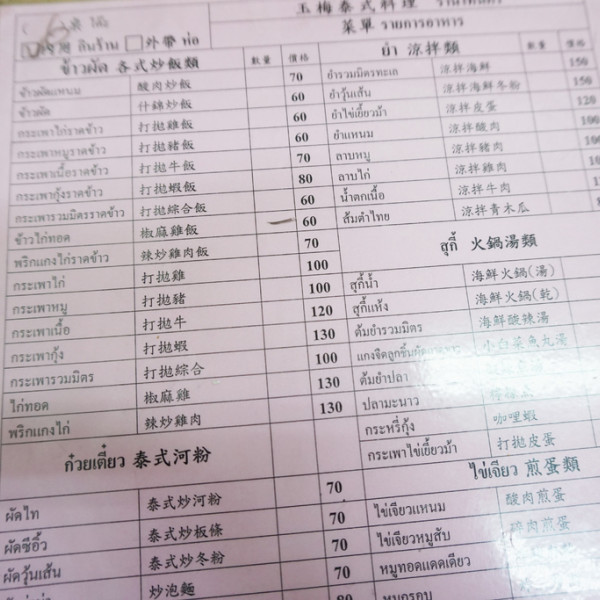 玉梅泰式料理
菜單 รายการอาหาร
กินร้าน □外帶 ห่อ
ข้าวผัด 各式炒飯類 數量 價格
ข้าวผัดแหนม 酸肉炒飯 70
ข้าวผัด 什錦炒飯 60
กระเพาไก่ราดข้าว 打拋雞飯 60
กระเพาหมูราดข้าว 打拋豬飯 60
กระเพาเนื้อราดข้าว 打拋牛飯 70
กระเพากุ้งราดข้าว 打拋蝦飯 80
กระเพารวมมิตรราดข้าว 打拋綜合飯 60
ข้าวไก่ทอด 椒麻雞飯 60
พริกแกงไก่ราดข้าว 辣炒雞肉飯 70
กระเพาไก่ 打拋雞 100
กระเพาหมู 打拋豬 100
กระเพาเนื้อ 打拋牛 120
กระเพากุ้ง 打拋蝦 130
กระเพารวมมิตร 打拋綜合 100
ไก่ทอด 椒麻雞 130
พริกแกงไก่ 辣炒雞肉 130
ก๋วยเตี๋ยว 泰式河粉
ผัดไท 泰式炒河粉 70
ผัดซีอิ๊ว 泰式炒板條 70
ผัดวุ้นเส้น 泰式炒冬粉 70
炒泡麵 80
ยำ 涼拌類 數量 價格
ยำรวมมิตรทะเล 涼拌海鮮 150
ยำวุ้นเส้น 涼拌海鮮冬粉 150
ยำไข่เยี้ยวม้า 涼拌皮蛋 120
ยำแหนม 涼拌酸肉 100
ลาบหมู 涼拌豬肉 100
ลาบไก่ 涼拌雞肉
น้ำตกเนื้อ 涼拌牛肉
ส้มตำไทย 涼拌青木瓜
สุกี้ 火鍋湯類
สุกี้น้ำ 海鮮火鍋(湯)
สุกี้แห้ง 海鮮火鍋(乾)
ต้มยำรวมมิตร 海鮮酸辣湯
小白菜魚丸湯
ต้มยำปลา
ปลามะนาว
กระหรี่กุ้ง 咖哩蝦
กระเพาไข่เยี้ยวม้า 打拋皮蛋
ไข่เจียว 煎蛋類
ไข่เจียวแหนม 酸肉煎蛋
ไข่เจียวหมูสับ 碎肉煎蛋
หมูทอดแดดเดียว
หมูกรอบ